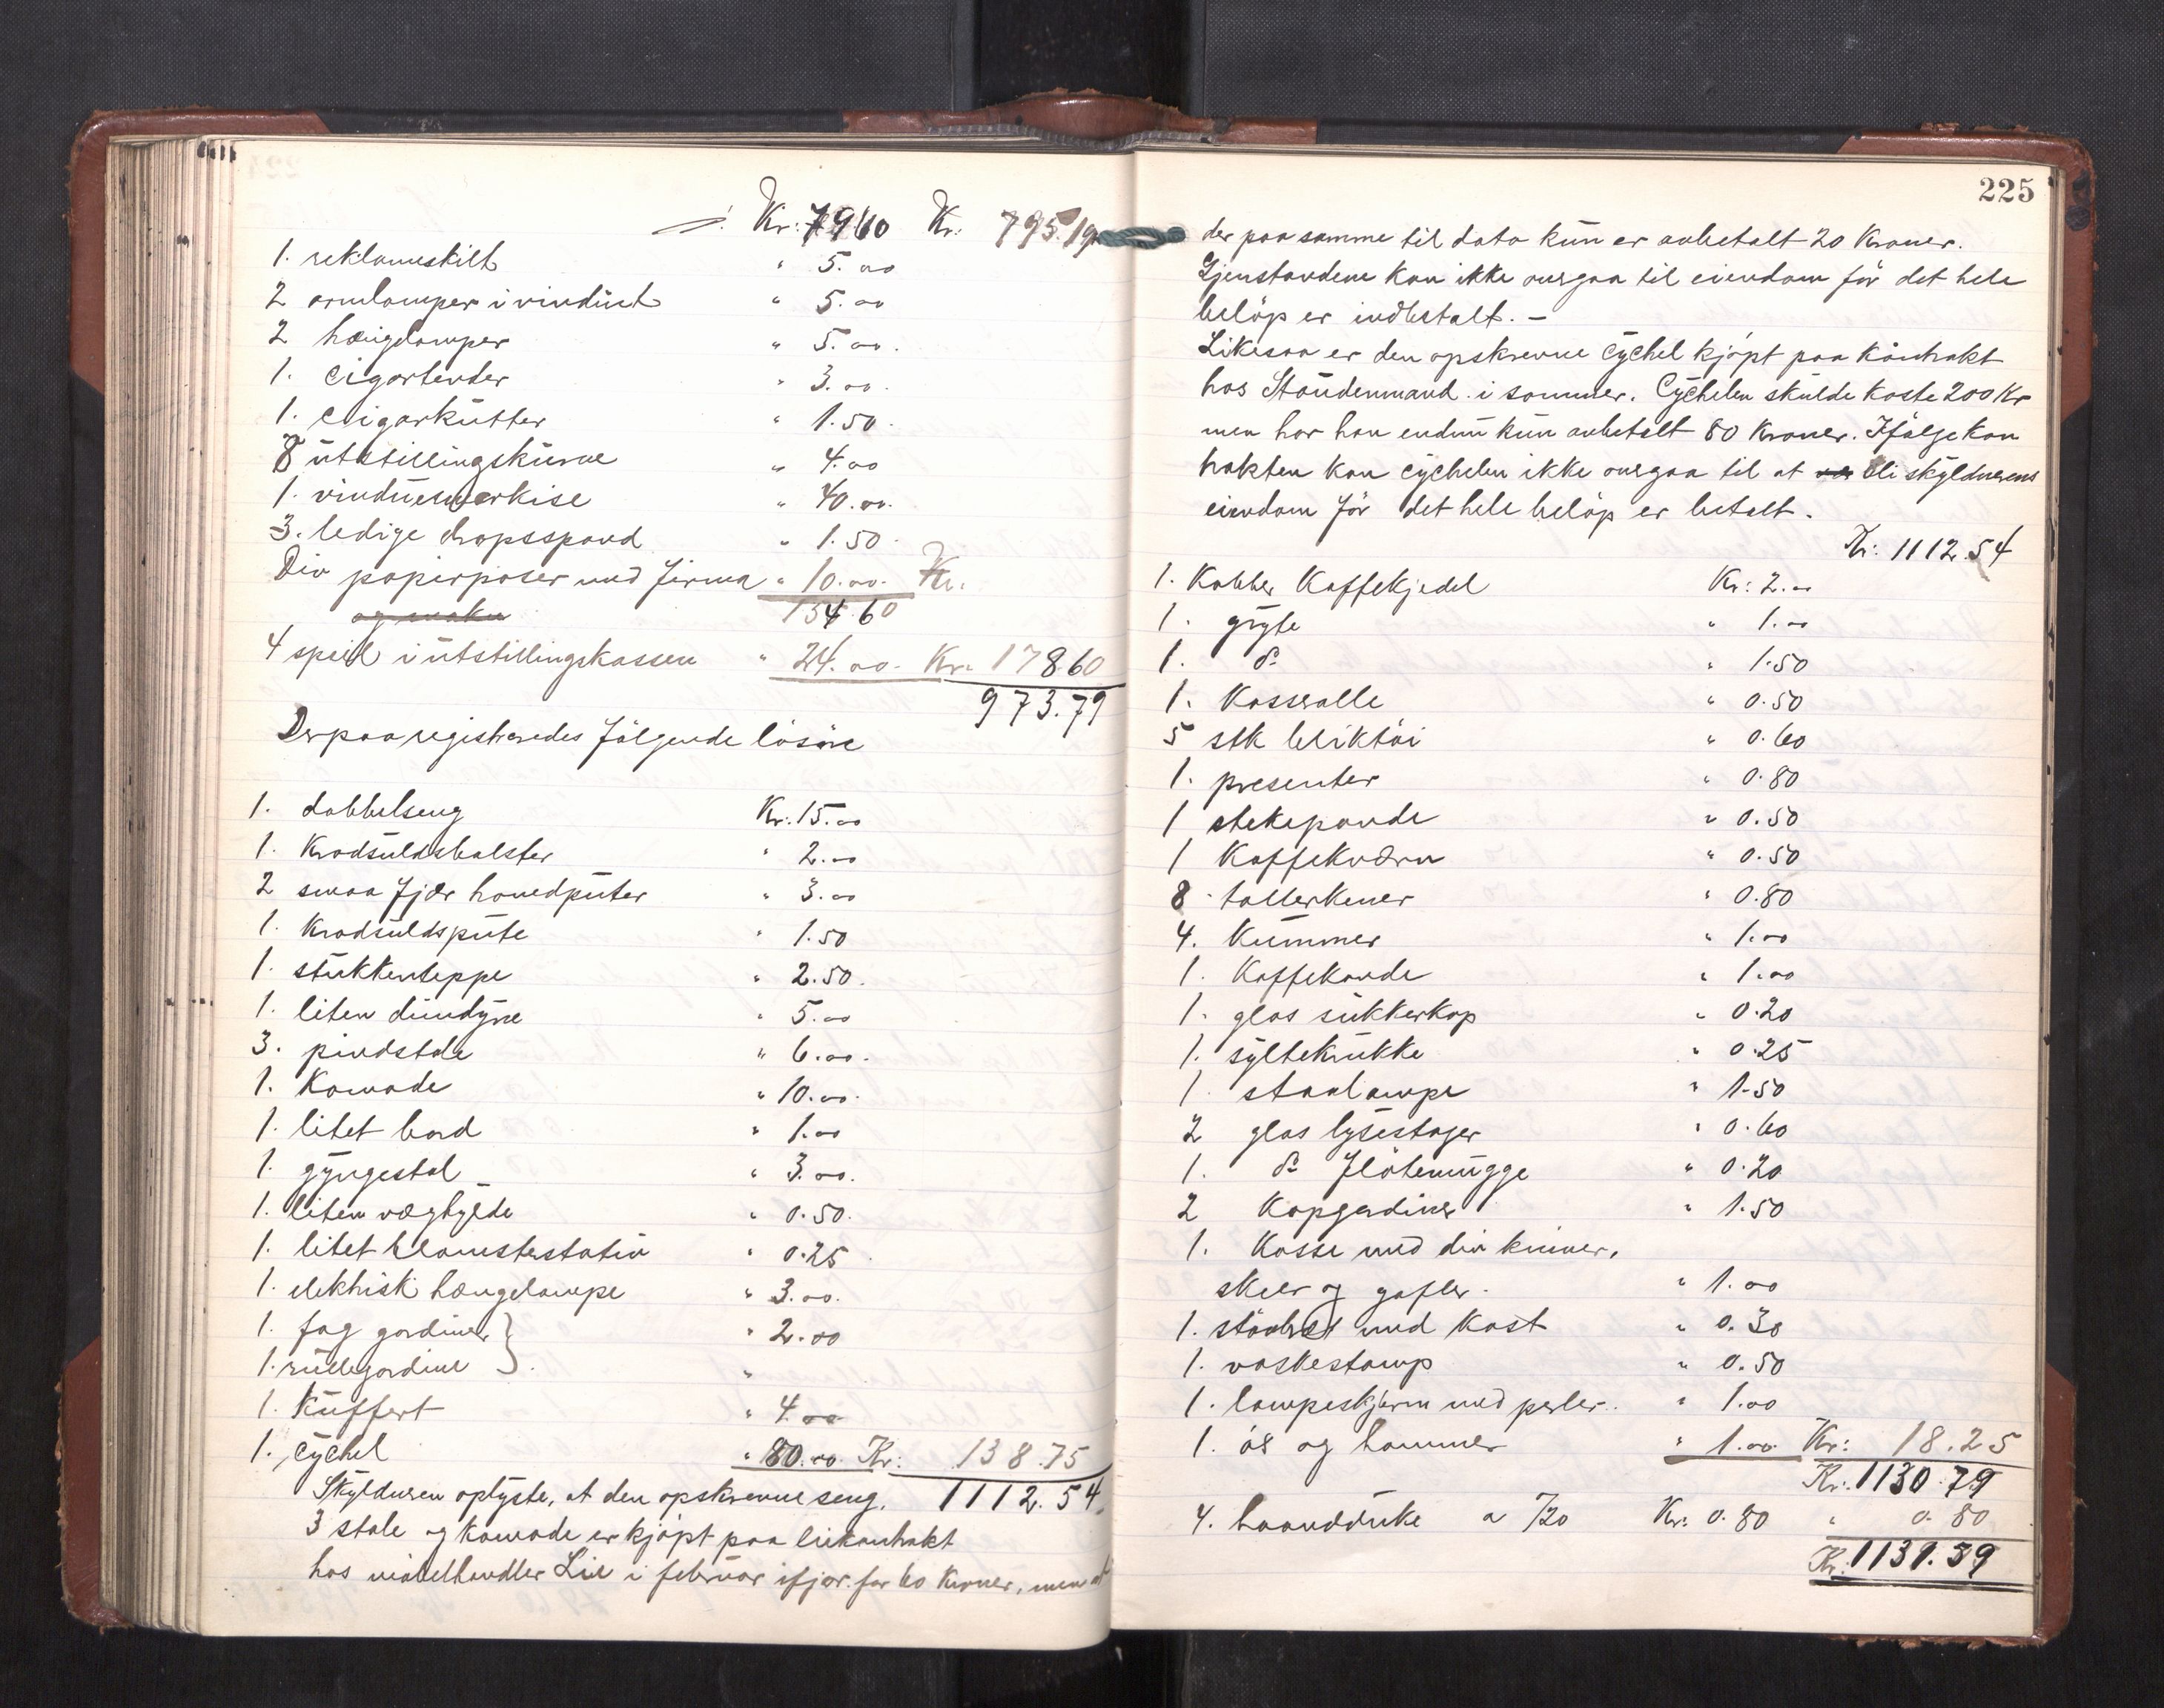 Kr: 79 60 Kr. 795.19
1. reklameskilt " 5.00
2 armlamper i vinduet " 5.00
2 hænglamper " 5.00.
1. Cigartender " 3.00.
1. Cigarkutter " 1.50.
8 utstillingskurve " 4.00
1. vinduesmarkise " 40.00.
3. ledige dropsspand " 1.50.
Div papirposer med firma " 10.00. Kr.
154.60
4 speil i utstillingskassen " 24.00. Kr. 178.60
973.79
Derpaa registreredes følgende løsøre
1. dobbelseng Kr. 15.00
1. Krødsuldsbolster " 2.00
2 smaa fjær hovedputer " 3.00
1. Krødsuldspute " 1.50
1. stukkenteppe " 2.50.
1. liten dundyne " 5.00
3. pindstole " 6.00.
1. Komode " 10.00.
1. litet bord " 1.00
1. gyngestol " 3.00.
1. liten væghylde " 0.50.
1. litet blomsterstativ " 0.25
1. elektrisk hængelampe " 3.00.
1. fag gardiner } " 2.00
1. rullegardine } . "
1. Kuffert " 4.00
1. Cychel " 80.00 Kr: 138.75
Skyldneren oplyste, at den opskrevne seng, 1112.54
3 stole og komode er kjøpt paa leiekontrakt
hos møbelhandler Lie i februar ifjor for 60 Kroner, men at
225
der paa samme til dato kun er avbetalt 20 Kroner.
Gjenstandene kan ikke overgaa til eiendom før det hele
beløp er indbetalt. -
Likesaa er den opskrevne Cychel kjøpt paa Kontrakt
hos Staudenmand i sommer. Cychelen skulde koste 200 Kr
men har han endnu kun avbetalt 80 Kroner. Ifølge kon
trakten kan cychelen ikke overgaa til at bli skyldnerens
eiendom før det hele beløp er betalt.
Kr: 1112.54
1. Kobber Kaffekjedel Kr: 2.00
1. gryte " 1.00
1. do " 1.50
1. Kasserolle " 0.50
5 stk bliktøi " 0.60
1. presenter " 0.80
1 stekepande " 0.50
1 Kaffekværn " 0.50
8 tallerkener " 0.80
4. Kummer " 1.00
1. Kaffekande " 1.00
1. glas sukkerkop " 0.20
1. syltekrukke " 0.25
1. staalampe " 1.50
2 glas lysestager " 0.60
1. do fløtemugge " 0.20
2 Kapgardiner " 1.50
1. Kasse med div kniver,
skeer og gafler. " 1.00
1. støvbret med Kost " 0.30
1. vaskestamp " 0.50
1. lampeskjerm med perler. " 1.00
1. øs og hammer " 1.00 Kr: 18.25
Kr. 1130.79
4. haandduke a /20 Kr: 0.80 " 0.80
Kr. 1131.59